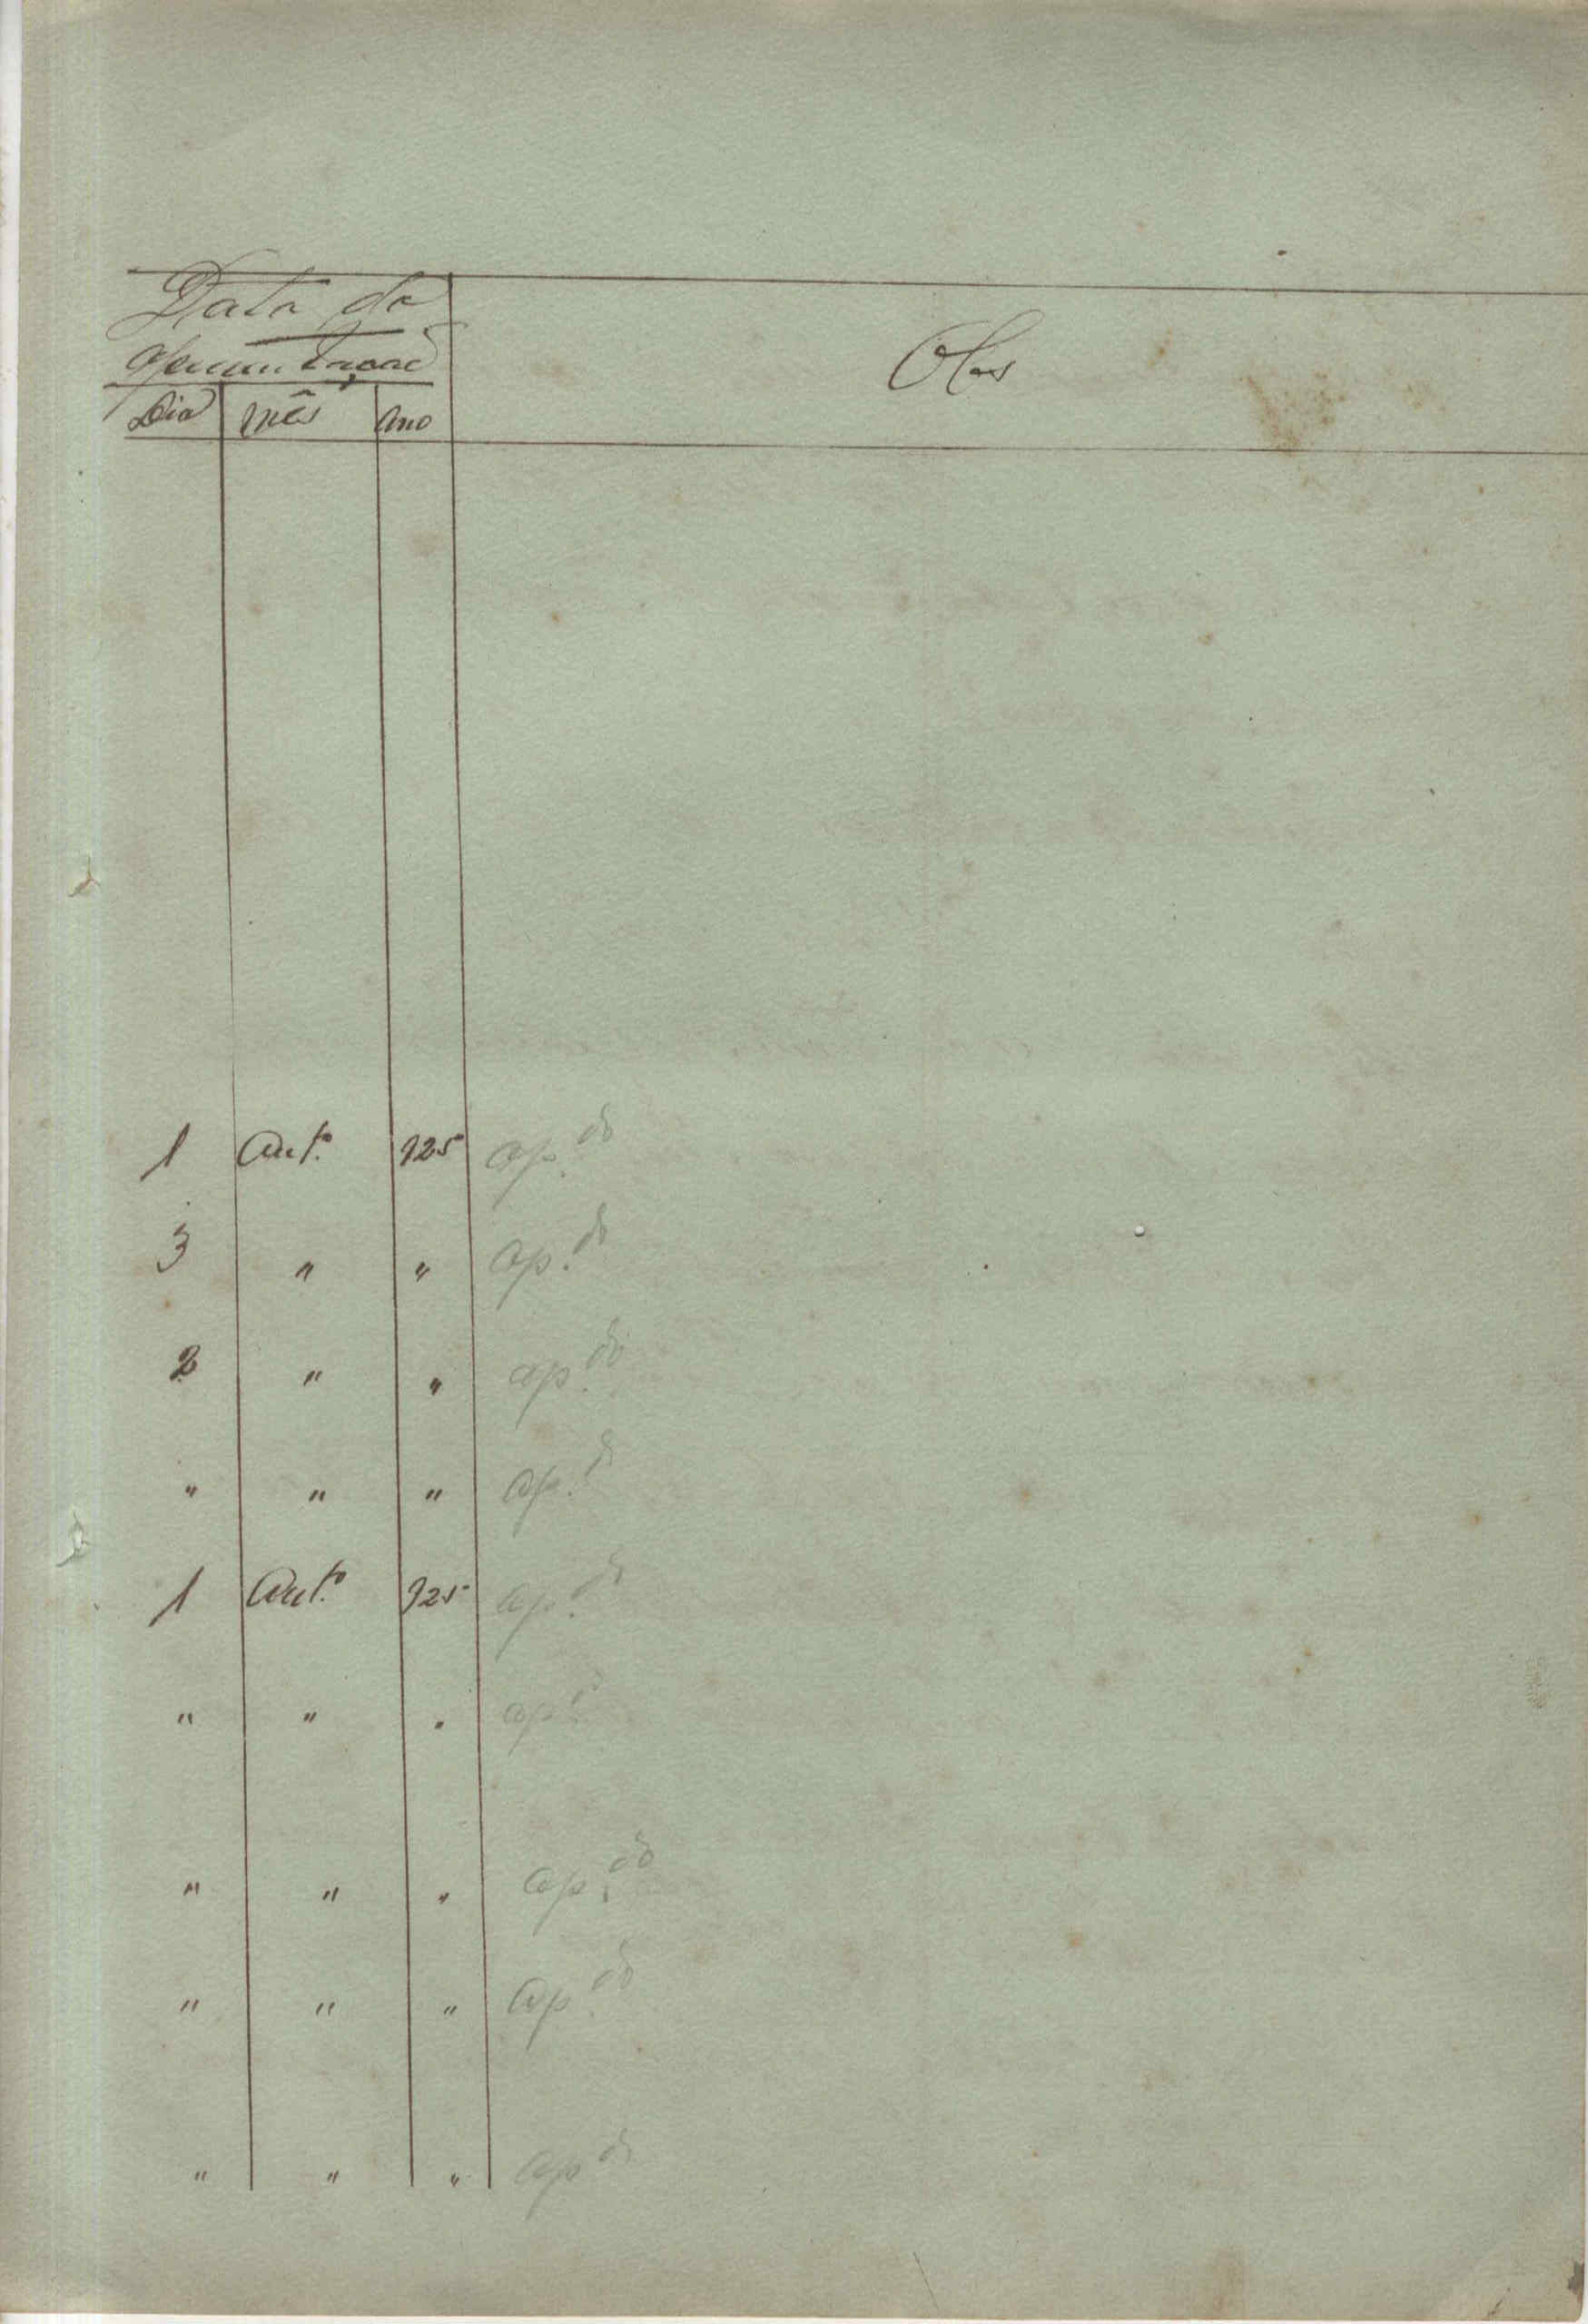 Data da
apresentação
Obs
Dia mês Ano
1 Out.º 925 ap.do
3 " " ap.do
2 " " ap.do
" " " ap.do
1 Out.º 925 ap.do
" " " ap.do
" " " ap.do
" " " ap.do
" " " ap.do